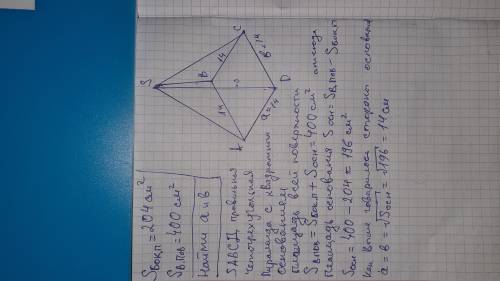 Sбок.п = 204 см²
Sв.пов = 400 см²
Найти a и в
S
B
C
A
D
14
14
в=14
a=14
SABCД правильная
четырехугольная
пирамида с квадратным
основанием
площадь всей поверхности
Sв.пов = Sбок.п + Sосн = 400 см² отсюда
Площадь основания Sосн = Sв.пов - Sбок.п
Sосн = 400 - 204 = 196 см²
Как выше говорилось стороны основания
a = в = √Sосн = √196 = 14 см